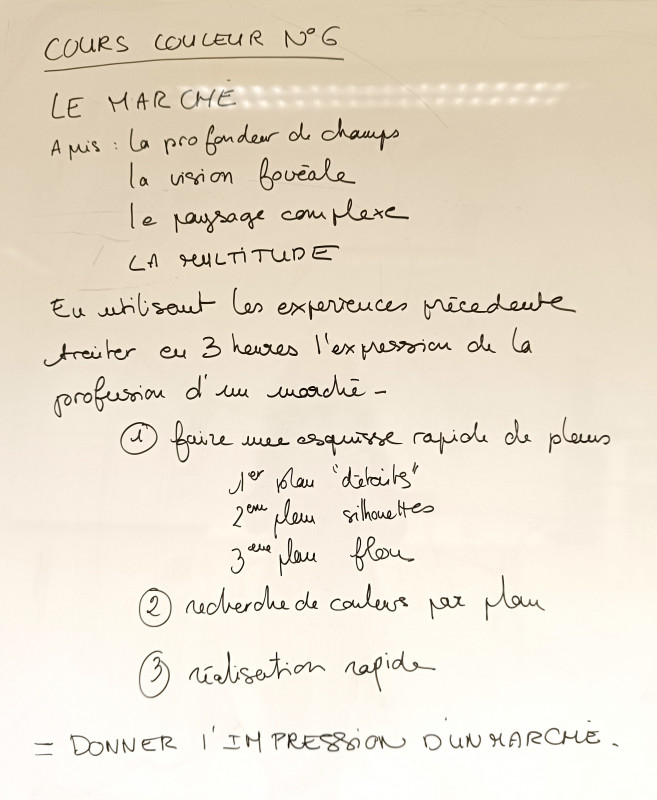 COURS COULEUR N°6
LE MARCHÉ
Amis : la profondeur de champs
la vision fovéale
le paysage complexe
LA MULTITUDE
En utilisant les experiences précedente
traiter en 3 heures l'expression de la
profusion d'un marché -
① faire une esquisse rapide de plans
1er plan "détails"
2eme plan silhouettes
3eme plan flou
② recherche de couleurs par plan
③ réalisation rapide
= DONNER l'IMPRESSION D'UN MARCHÉ.